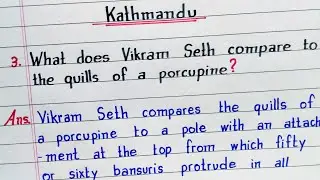 Kathmandu
3. What does Vikram Seth compare to
the quills of a porcupine?
Ans. Vikram Seth compares the quills of
a porcupine to a pole with an attach
-ment at the top from which fifty
or sixty bansuris protrude in all